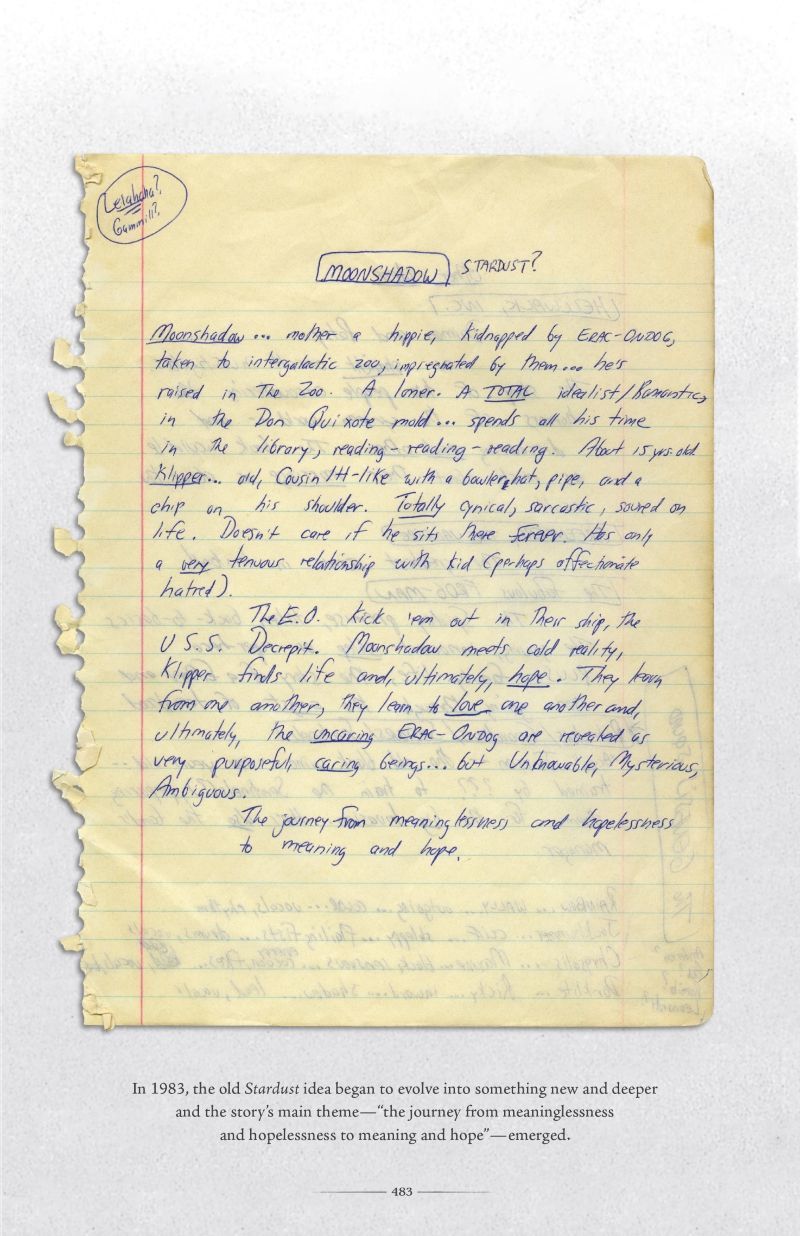 Lelahaha?
Gammill?
MOONSHADOW STARDUST?
Moonshadow ... mother a hippie, kidnapped by ERAC-ONDOG,
taken to intergalactic zoo, impregnated by them... he's
raised in The Zoo. A loner. A TOTAL idealist/Romantic,
in the Don Quixote mold... spends all his time
in the library, reading-reading-reading. About 15 yrs. old
Klipper... old, Cousin Itt-like with a bowler hat, pipe, and a
chip on his shoulder. Totally cynical, sarcastic, soured on
life. Doesn't care if he sits there forever. Has only
a very tenuous relationship with kid (perhaps affectionate
hatred).
The E.O. kick 'em out in their ship, the
U.S.S. Decrepit. Moonshadow meets cold reality,
Klipper finds life and, ultimately, hope. They learn
from one another, they learn to love one another and,
ultimately, the uncaring ERAC-ONDOG are revealed as
very purposeful, caring beings... but Unknowable, Mysterious,
Ambiguous.
The journey from meaninglessness and hopelessness
to meaning and hope.
In 1983, the old Stardust idea began to evolve into something new and deeper
and the story's main theme—“the journey from meaninglessness
and hopelessness to meaning and hope”—emerged.
483